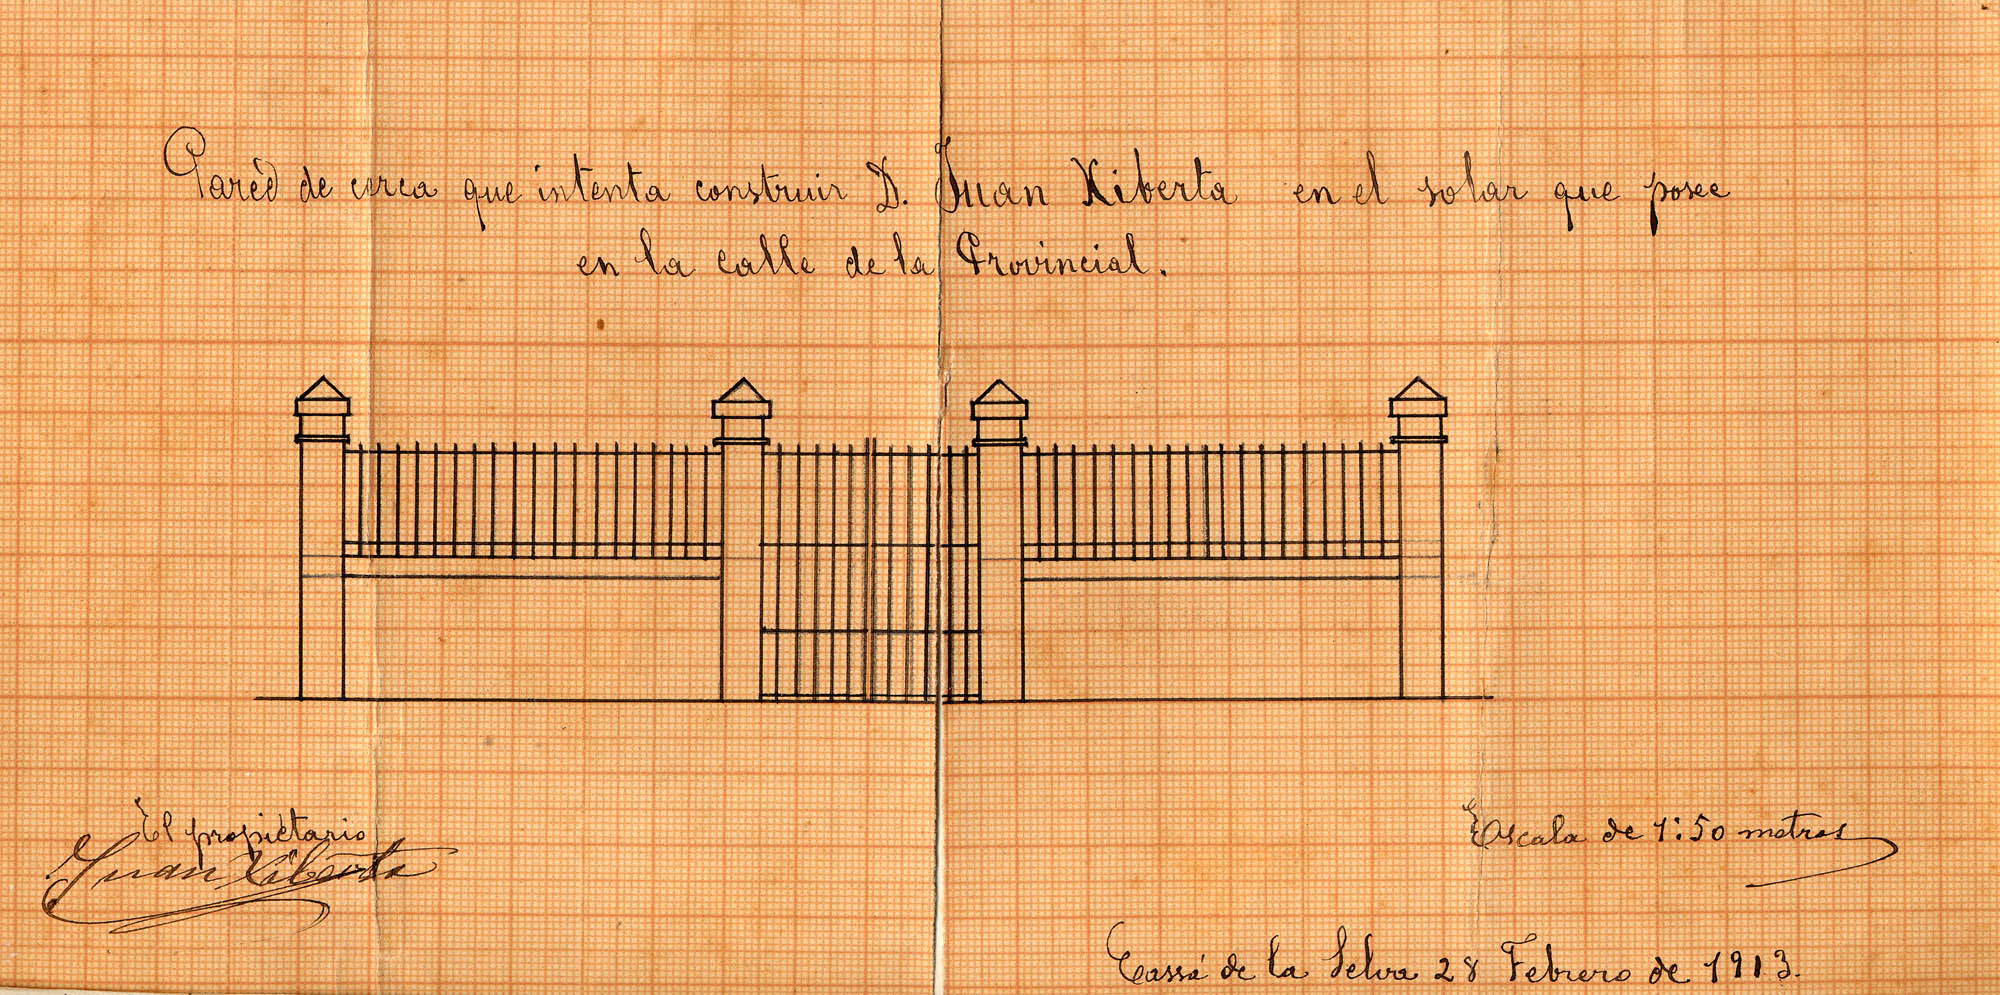 Paréd de cerca que intenta construir D. Juan Xiberta en el solar que posee
en la calle de la Provincial.
El propietario
Juan Xiberta
Escala de 1:50 metros
Cassá de la Selva 28 Febrero de 1913.